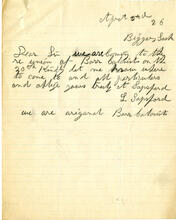 April 2nd
26
Biggar, Sask
Dear Sir we are coming to the
re union of Barr Colonists on the
30th Kindly let me know where
to come to and all particulars
and oblige yours truly at Sapsford
L Sapsford
we are origanal Barr Colonists